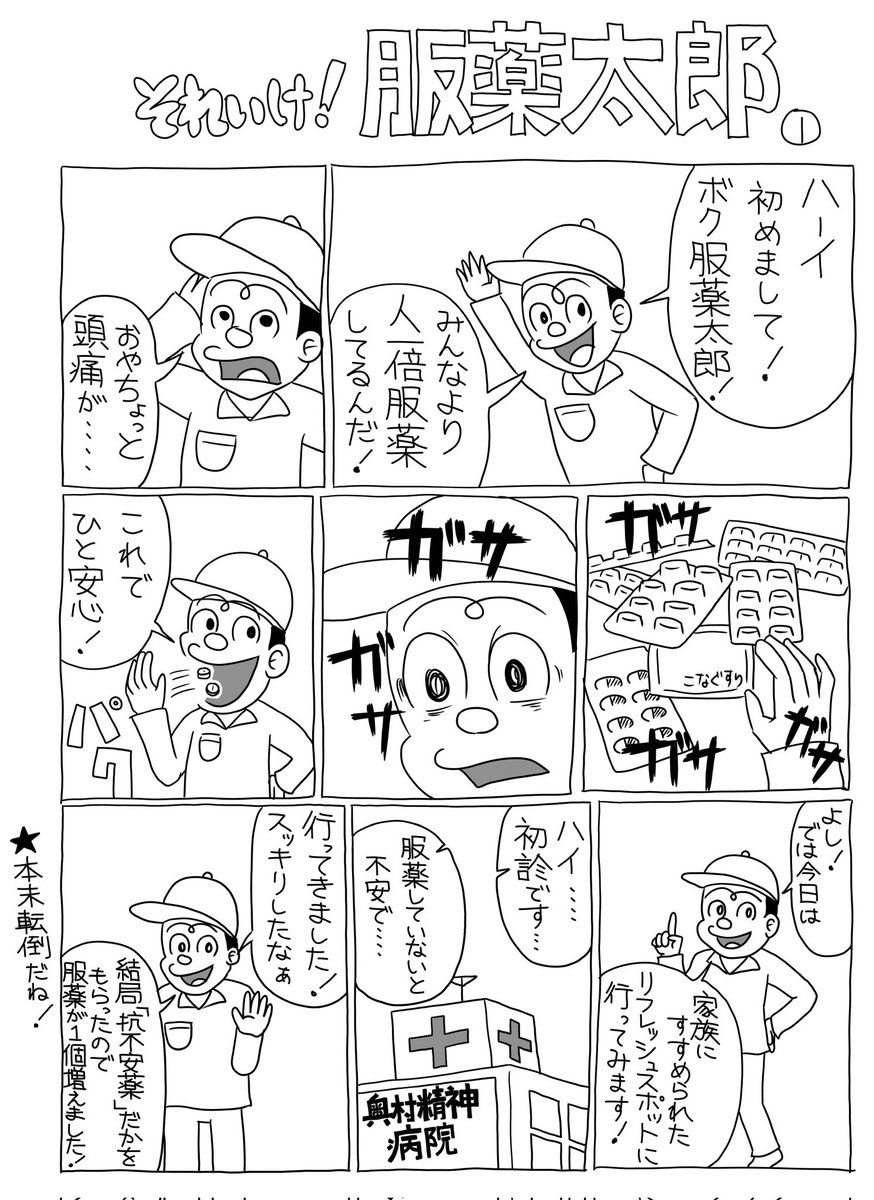 それいけ!服薬太郎。①
ハーイ
初めまして!
ボク服薬太郎!
みんなより
人一倍服薬
してるんだ!
おやちょっと
頭痛が‥‥
ガサ
こなぐすり
ガサ
ガサ
ガサ
ガ
サ
これで
ひと安心!
パク
よし!
では今日は
家族に
すすめられた
リフレッシュスポットに
行ってみます!
ハイ‥‥
初診です‥
服薬していないと
不安で‥‥
奥村精神
病院
行ってきました!
スッキリしたなぁ
結局「抗不安薬」だかを
もらったので
服薬が1個増えました!
★本末転倒だね!